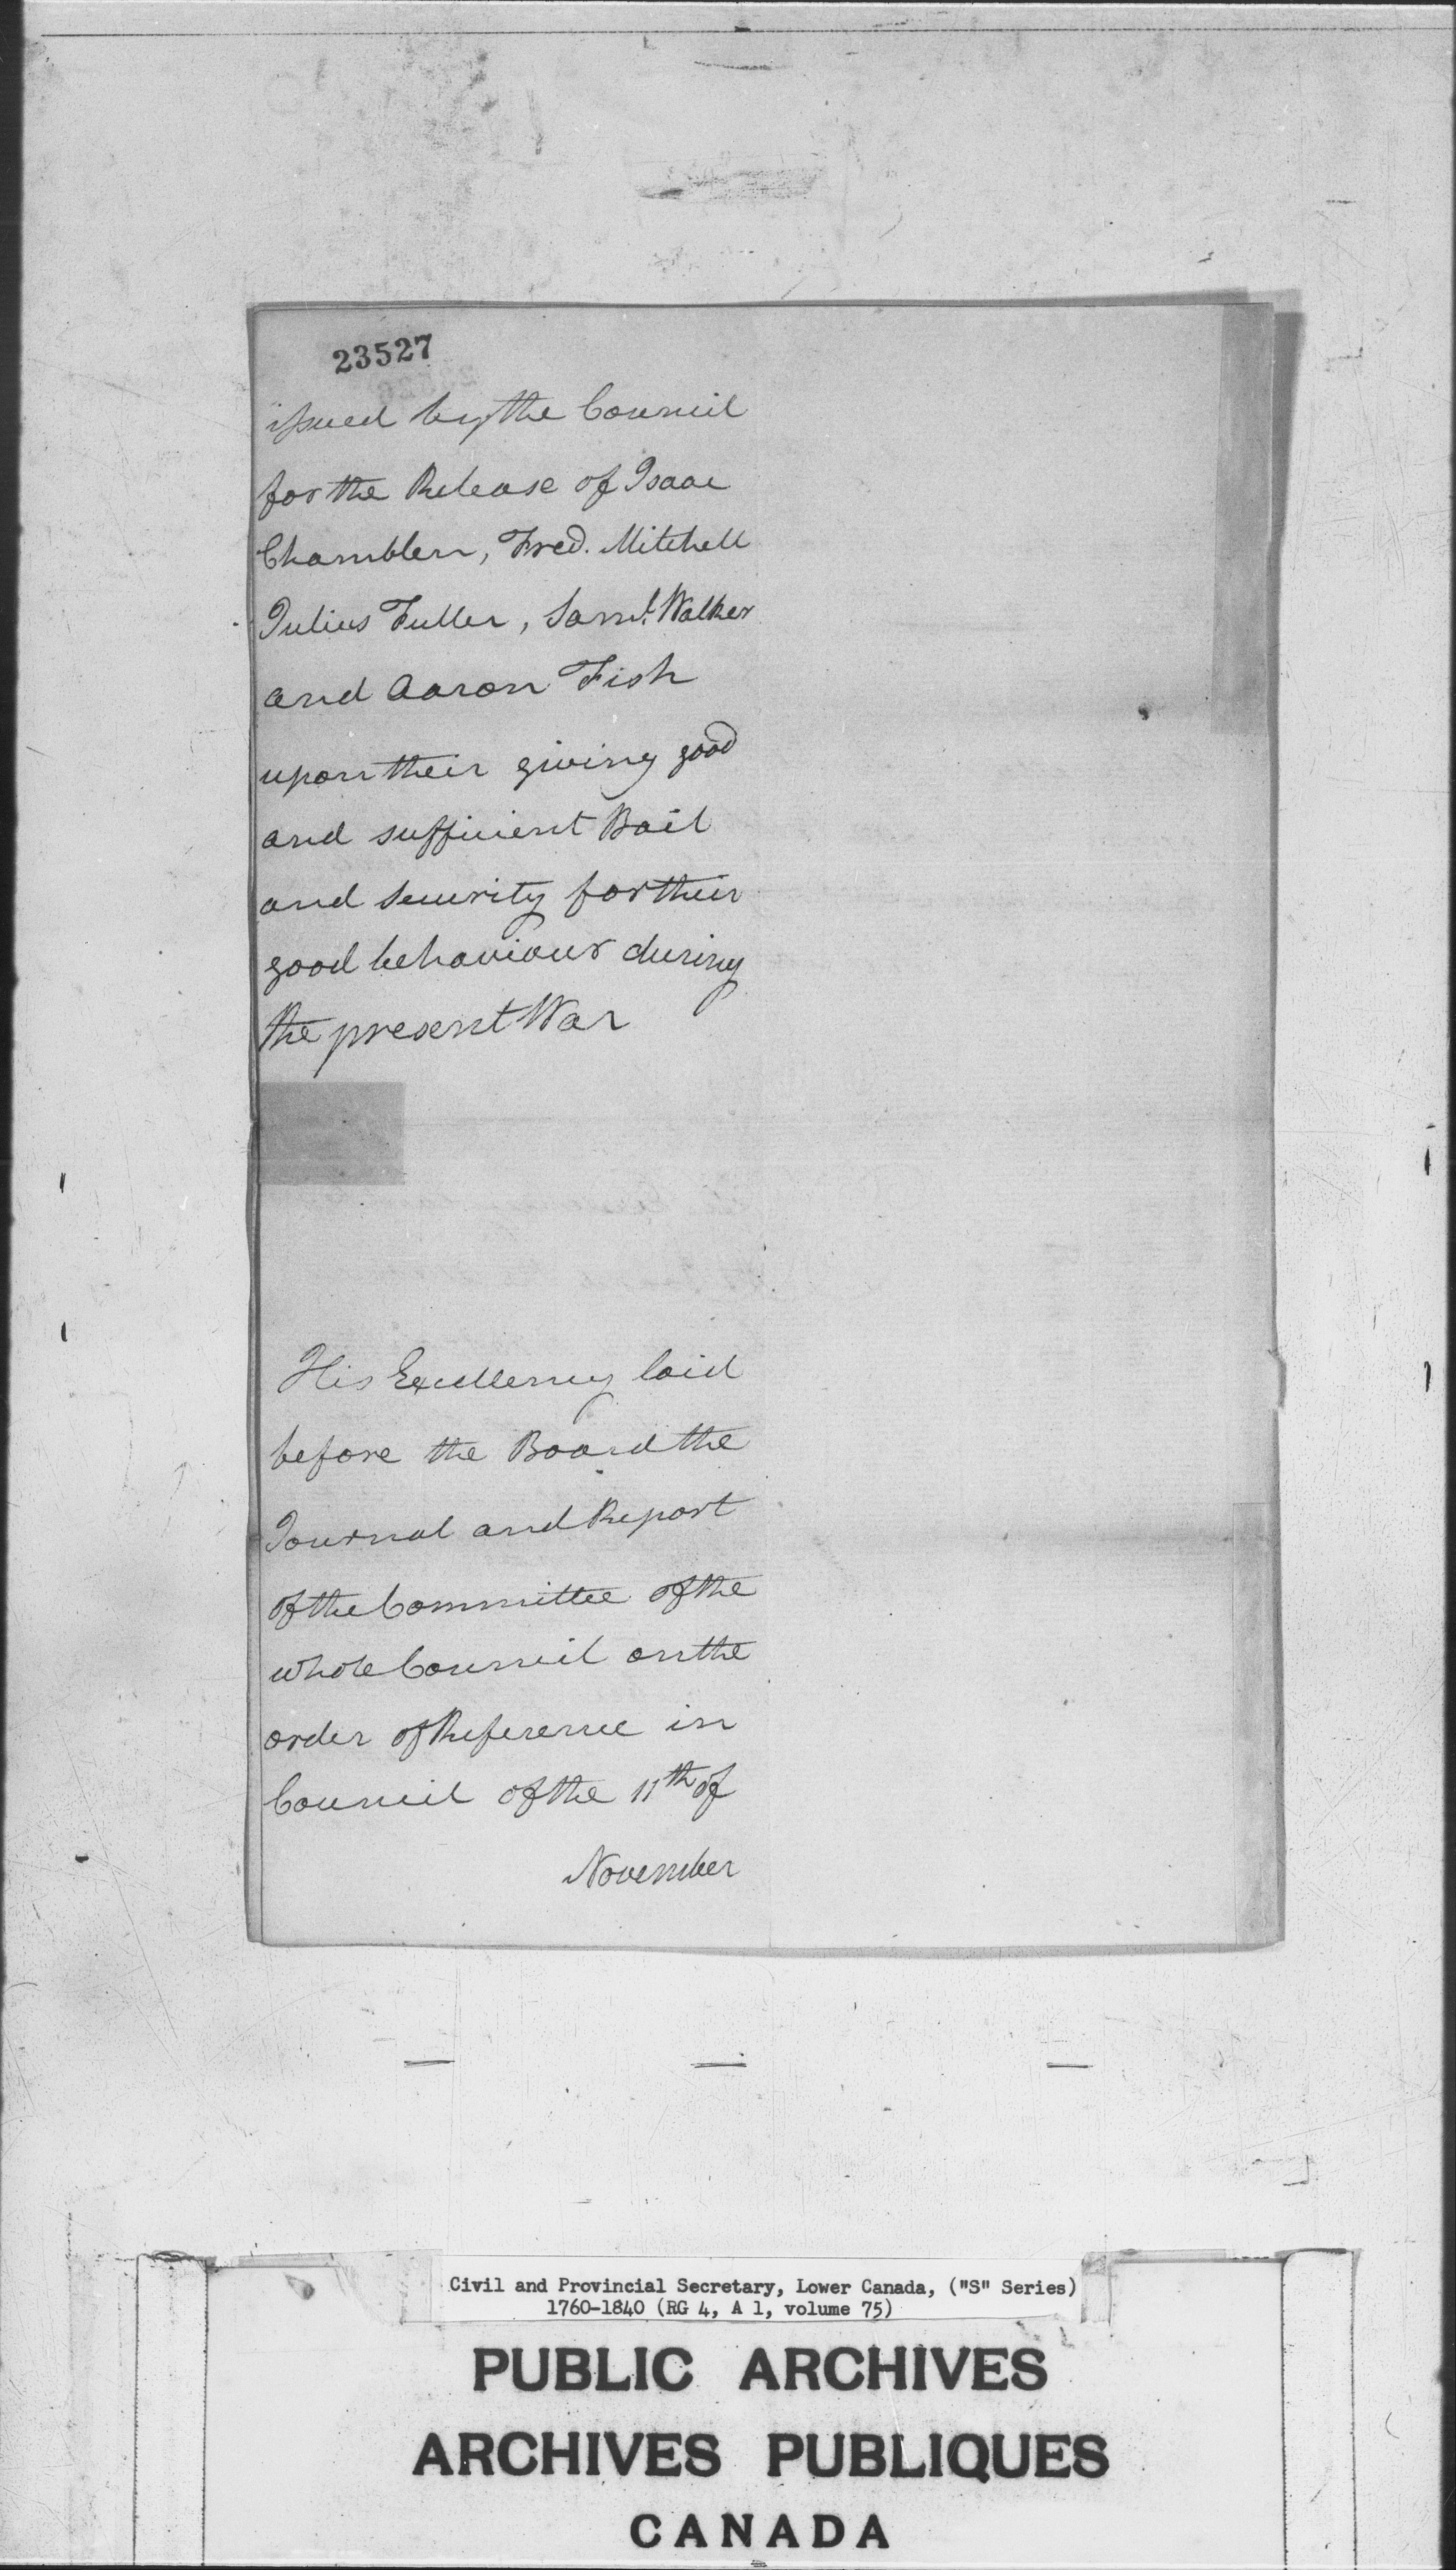 23527
issued by the Council
for the Release of Isaac
Chamblen, Fred. Mitchell
Julius Fuller, Saml. Walker
and Aaron Fish
upon their giving good
and sufficient Bail
and Security for their
good behaviour during
the present War
His Excellency laid
before the Board the
Journal and Report
of the Committee of the
whole Council on the
order of Reference in
Council of the 11th of
November
Civil and Provincial Secretary, Lower Canada, ("S" Series)
1760-1840 (RG 4, A 1, volume 75)
PUBLIC ARCHIVES
ARCHIVES PUBLIQUES
CANADA